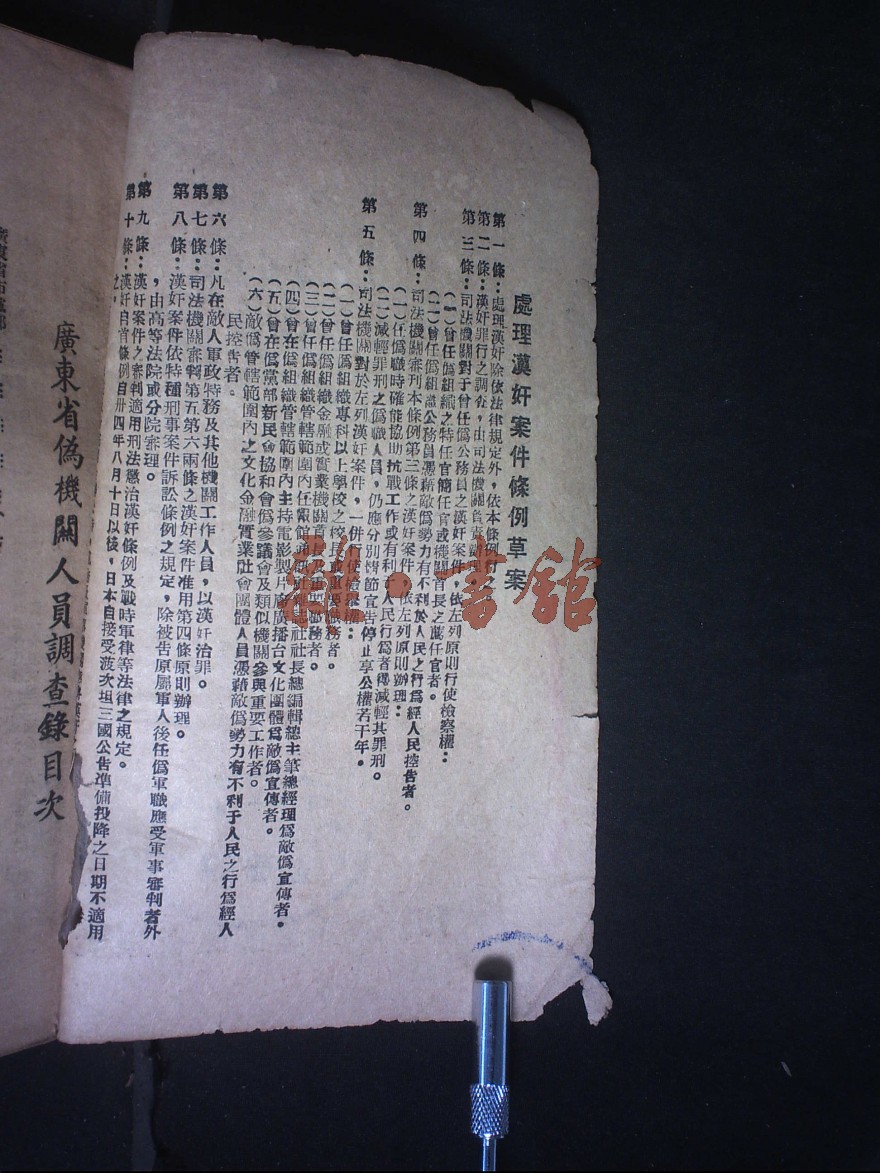 處理漢奸案件條例草案
第一條：處理漢奸除依法律規定外，依本條例行之。
第二條：漢奸罪行之調查，由司法機關負責辦理
第三條：司法機關對于曾任偽公務員之漢奸案件，依左列原則行使檢察權：
（一）曾任偽組織之特任官簡任官或機關首長之薦任官者。
（二）曾任偽組織公務員憑藉敵偽勢力有不利於人民之行為經人民控告者。
第四條：司法機關審判本條例第三條之漢奸案件，依左列原則辦理：
（一）任偽職時確能協助抗戰工作或有利人民行為者得減輕其罪刑。
（二）減輕罪刑之偽職人員，仍應分別情節宣告停止享公權若干年。
第五條：司法機關對於左列漢奸案件，一併行使檢察權：
（一）曾任偽組織專科以上學校之校長或重要職務者。
（二）曾任偽組織金融或實業機關首長或重要職務者。
（三）曾任偽組織管轄範圍內任報館通訊社雜誌社社長總編輯總主筆總經理為敵偽宣傳者。
（四）曾在偽組織管轄範圍內主持電影製片廠廣播台文化團體為敵偽宣傳者。
（五）曾在偽黨部新民會協和會偽參議會及類似機關參與重要工作者。
（六）敵偽管轄範圍內之文化金融實業社會團體人員憑藉敵偽勢力有不利于人民之行為經人
民控告者。
第六條：凡在敵人軍政特務及其他機關工作人員，以漢奸治罪。
第七條：司法機關審判第五第六兩條之漢奸案件准用第四條原則辦理。
第八條：漢奸案件依特種刑事案件訴訟條例之規定，除被告原屬軍人後任偽軍職應受軍事審判者外
，由高等法院或分院審理。
第九條：漢奸案件之審判適用刑法懲治漢奸條例及戰時軍律等法律之規定。
第十條：漢奸自首條例自卅四年八月十日以後，日本自接受波次坦三國公告準備投降之日期不適用
之。
廣東省偽機關人員調查錄目次
雜·書館